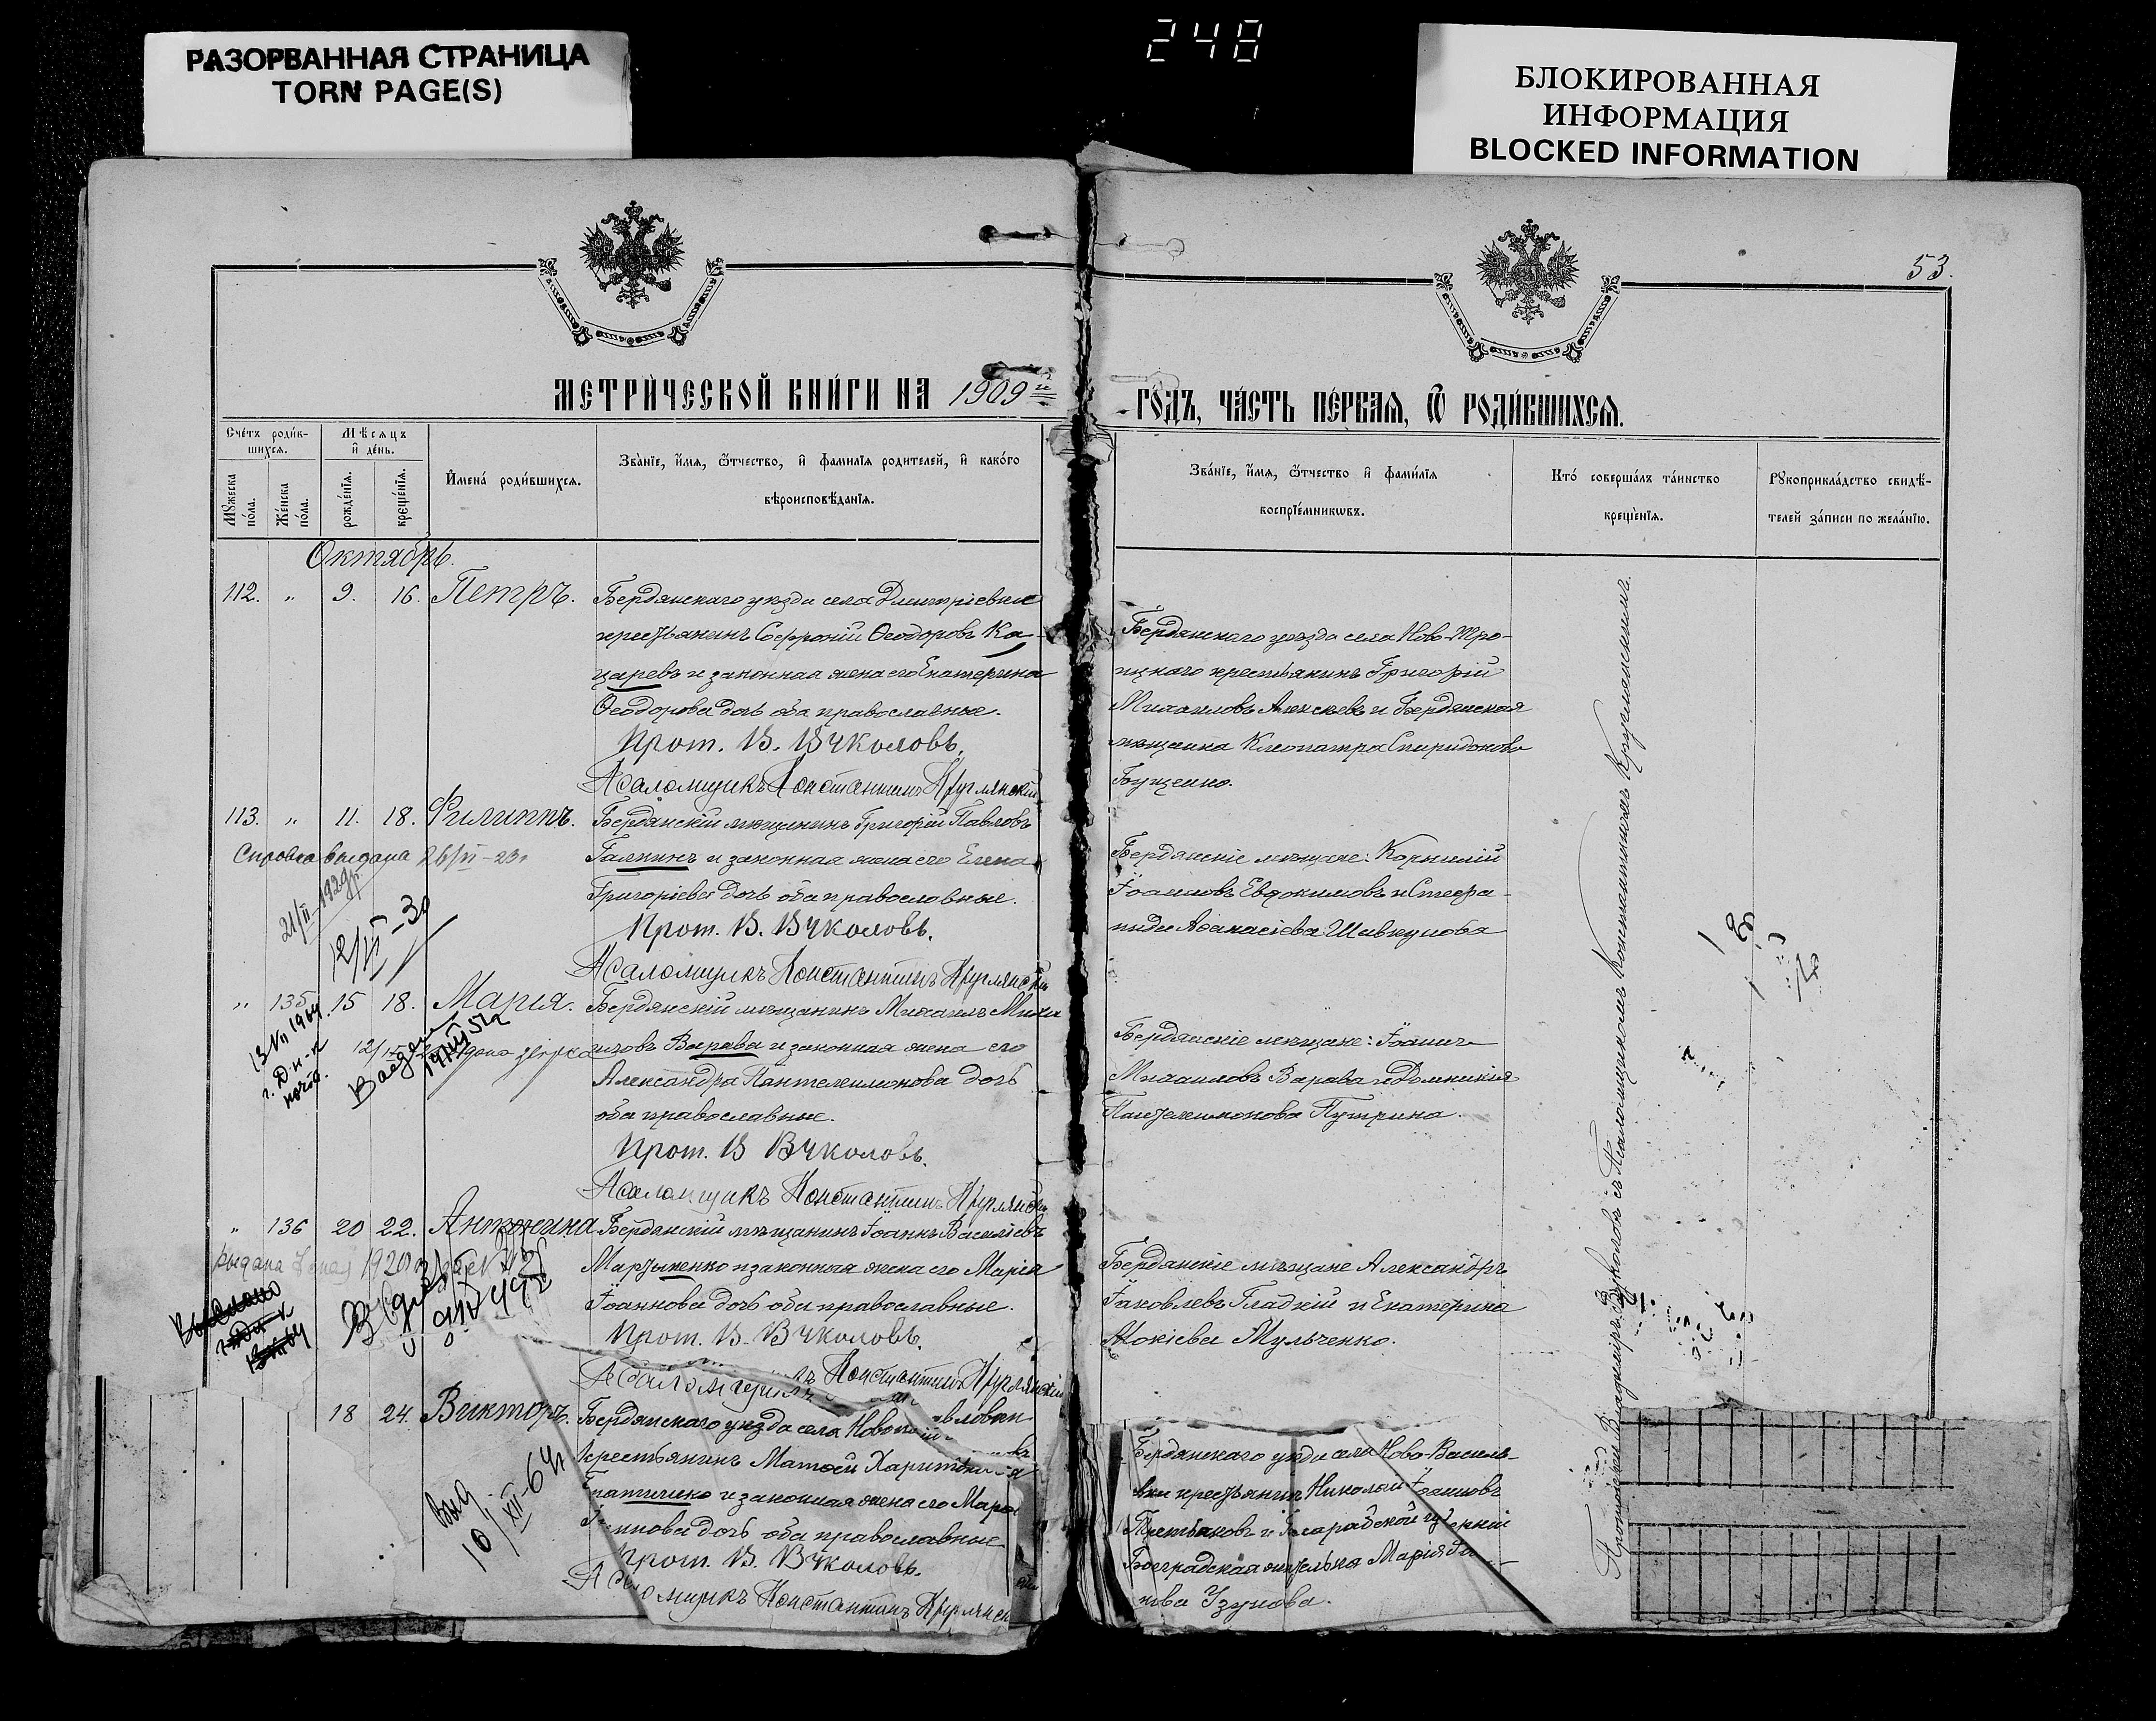 РАЗОРВАННАЯ СТРАНИЦА
TORN PAGE(S)
248
БЛОКИРОВАННАЯ
ИНФОРМАЦИЯ
BLOCKED INFORMATION
53.
МЕТРИЧЕСКОЙ КНИГИ НА 1909 й
ГОДЪ, ЧАСТЬ ПЕРВАЯ, Ѿ РОДИВШИХСЯ.
Счетъ родив-
шихся.
Мѣсяцъ
и день.
Мужеска
пола.
Женска
пола.
рожденія.
крещенія.
Имена родившихся.
Званіе, имя, ѿтчество, и фамилія родителей, и какого
вѣроисповѣданія.
Званіе, имя, ѿтчество и фамилія
воспріемниковъ.
Кто совершалъ таинство
крещенія.
Рукоприкладство свидѣ-
телей записи по желанію.
Октябрь.
112. " 9. 16. Петръ.
Бердянскаго уѣзда села Дмитріевки
крестьянинъ Софроній Ѳеодоровъ Ка-
царевъ и законная жена его Екатерина
Ѳеодорова дочь оба православные.
Прот. В. Вуколовъ.
Псаломщикъ Константинъ Круглянскій
Бердянскаго уѣзда села Ново-Тро-
ицкаго крестьянинъ Григорій
Михаиловъ Алексѣевъ и Бердянская
мѣщанка Клеопатра Спиридонова
Гущенко.
113. " 11. 18. Филиппъ.
Бердянскій мѣщанинъ Григорій Павловъ
Галкинъ и законная жена его Елена
Григоріева дочь оба православные.
Прот. В. Вуколовъ.
Псаломщикъ Константинъ Круглянскій
Справка выдана
21/II-1929г
12/VI-30
Бердянскіе мѣщане: Корнилій
Іоанновъ Евдокимовъ и Стефа-
нида Аѳанасіева Шевкунова
" 135 15 18. Марія.
Бердянскій мѣщанинъ Михаилъ Миха
иловъ Варава и законная жена его
Александра Пантелеимонова дочь
оба православные.
Прот. В Вуколовъ.
Псаломщикъ Константинъ Круглянскій
Бердянскіе мѣщане: Іоаннъ
Михаиловъ Варава и Домникія
Пантелеимонова Путрина.
" 136 20 22. Антонина
Бердянскій мѣщанинъ Іоаннъ Васильевъ
Марзыненко и законная жена его Марія
Іоаннова дочь оба православные.
Прот. В. Вуколовъ.
Псаломщикъ Константинъ Круглянскій
Бердянскіе мѣщане Александръ
Іаковлевъ Гладкій и Екатерина
Мокіева Мульченко.
18 24. Викторъ.
Бердянскаго уѣзда села
крестьянинъ Матѳей
и законная жена его
дочь оба православные
Прот. В. Вуколовъ.
Псаломщикъ Константинъ
Выд
10/XII-64г
Бердянскаго уѣзда села Ново-Василь-
вки крестьянинъ Николай Іоанновъ
Третьяковъ и Бесарабской губерніи
Болградская жителька Марія
Узунова.
Протоіерей Владиміръ Вуколовъ съ Псаломщикомъ Константиномъ Круглянскимъ.